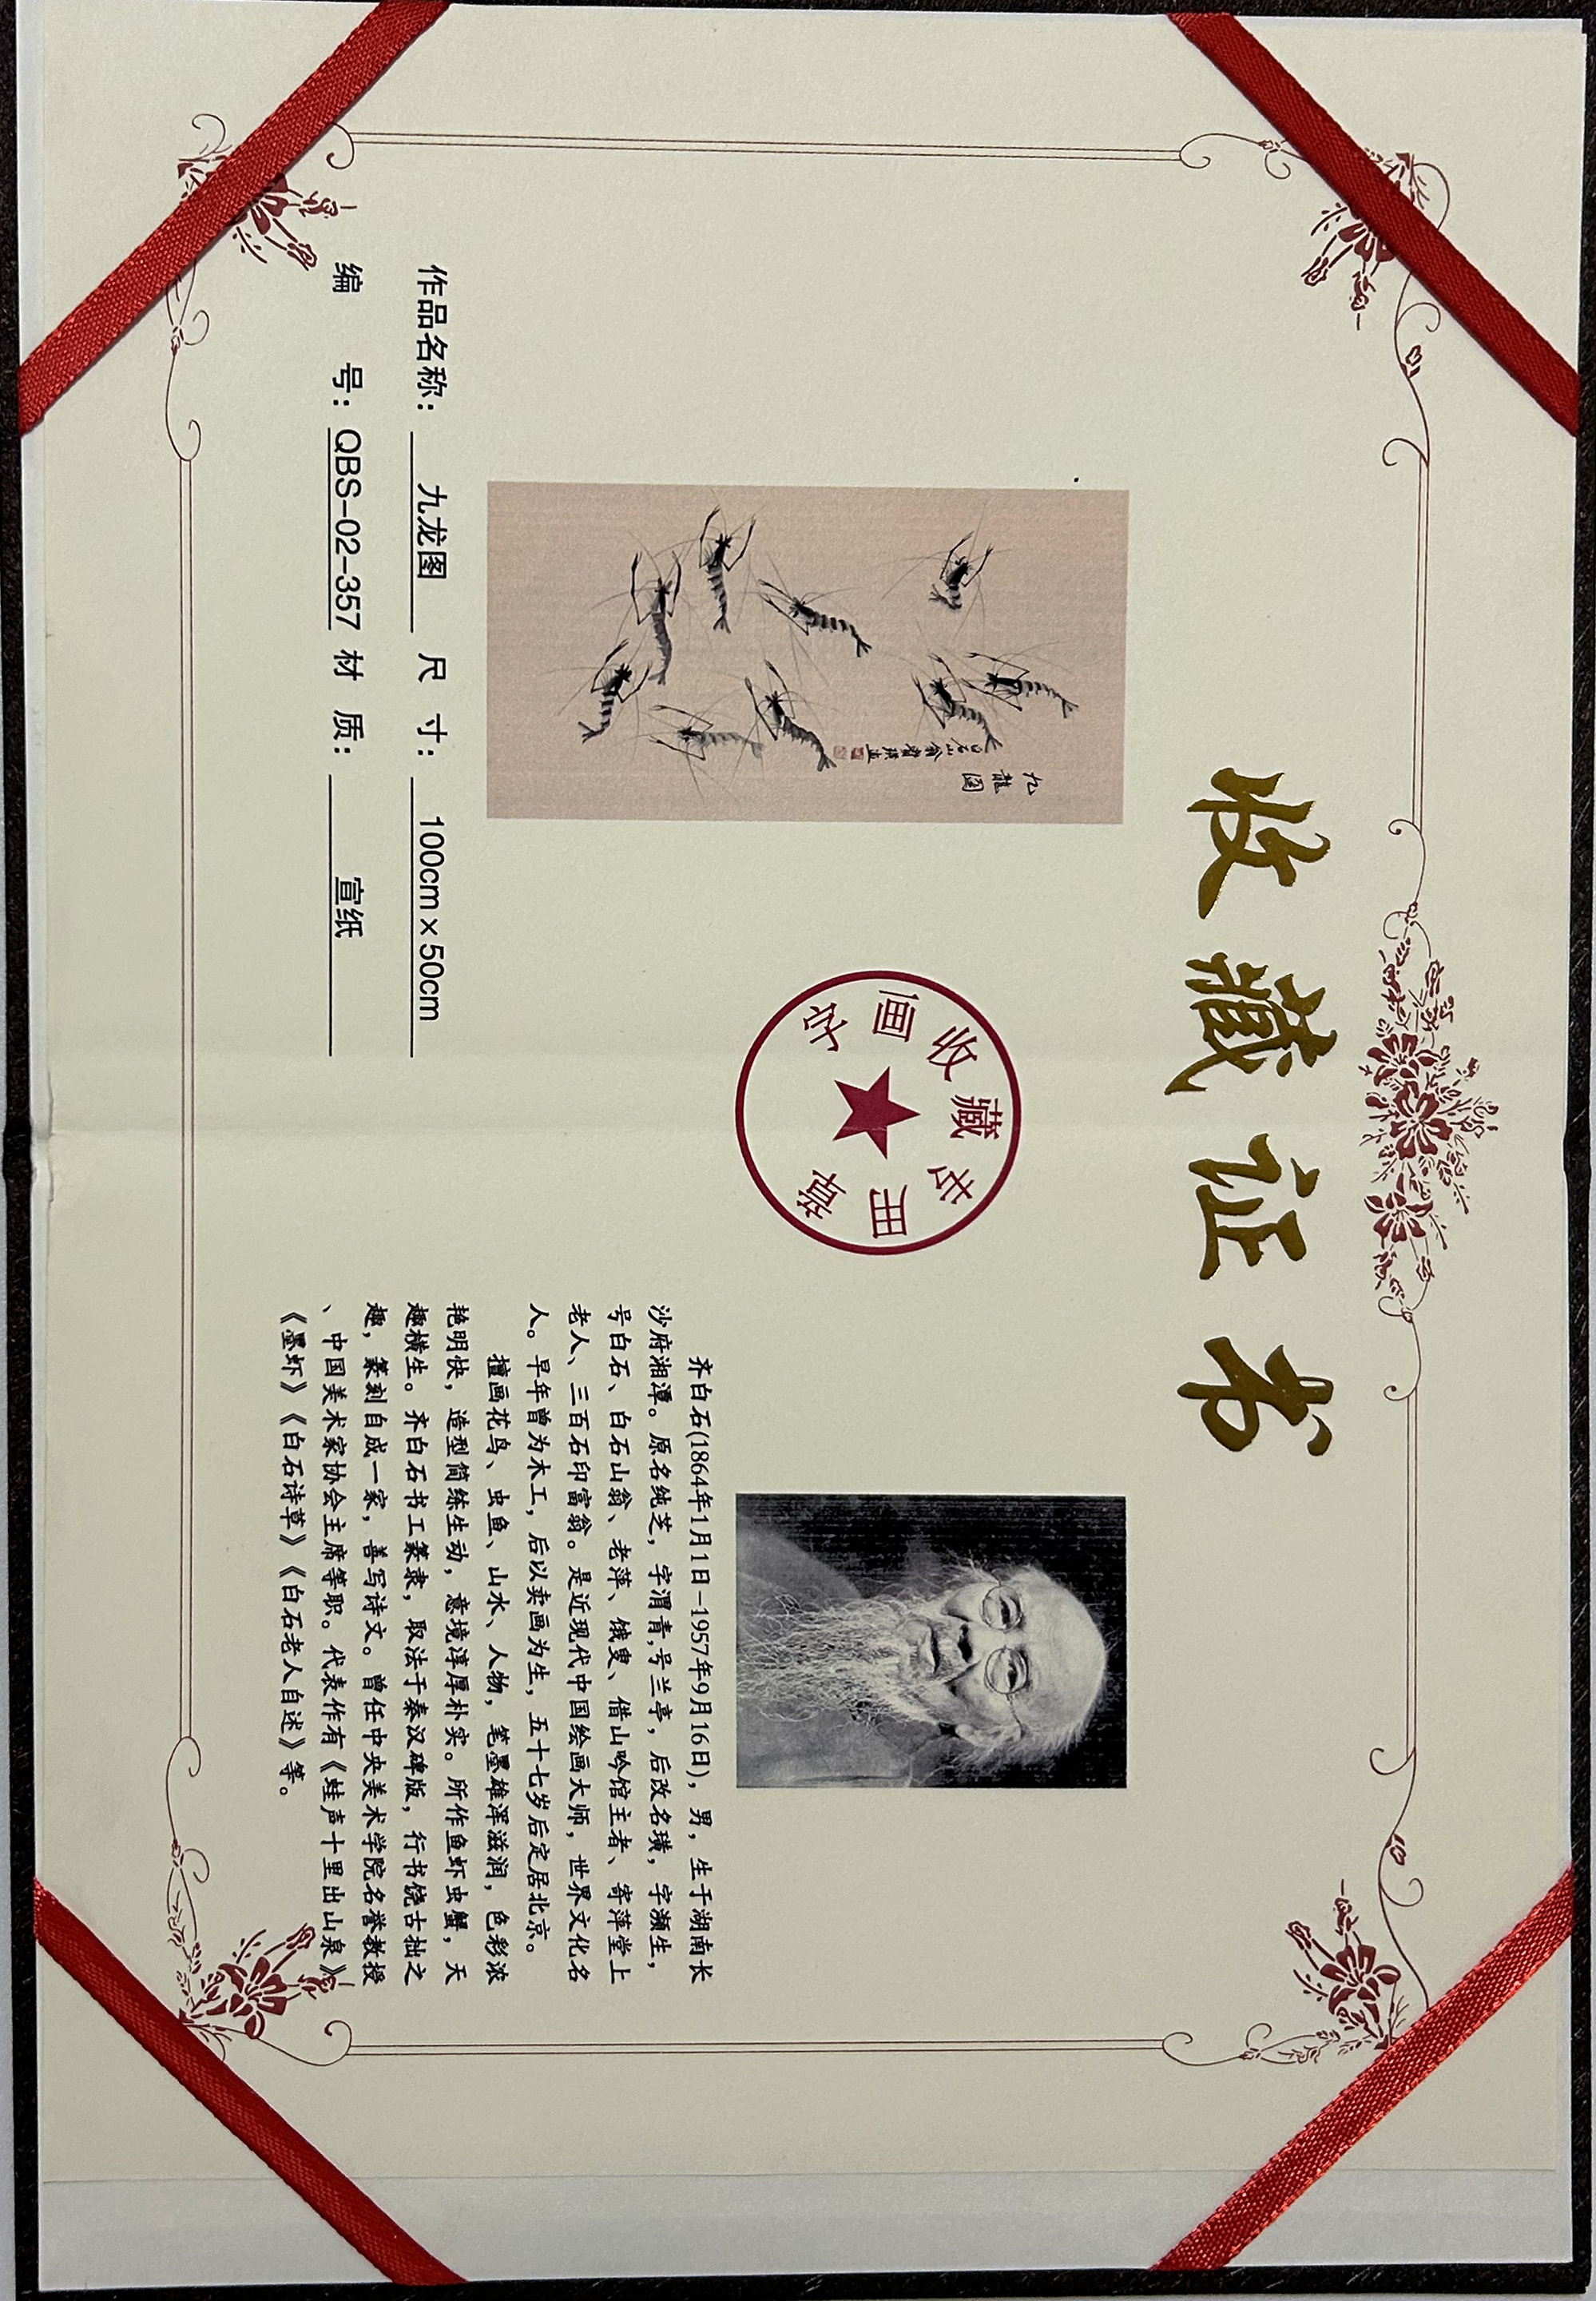 收藏证书
九龍图
白石山翁齊璜畫
作品名称：九龙图 尺寸：100cm×50cm
编号：QBS-02-357 材质：宣纸
字画收藏专用章
齐白石(1864年1月1日-1957年9月16日)，男，生于湖南长
沙府湘潭。原名纯芝，字渭青,号兰亭，后改名璜，字濒生，
号白石、白石山翁、老萍、饿叟、借山吟馆主者、寄萍堂上
老人、三百石印富翁。是近现代中国绘画大师，世界文化名
人。早年曾为木工，后以卖画为生，五十七岁后定居北京。
擅画花鸟、虫鱼、山水、人物，笔墨雄浑滋润，色彩浓
艳明快，造型简练生动，意境淳厚朴实。所作鱼虾虫蟹，天
趣横生。齐白石书工篆隶，取法于秦汉碑版，行书饶古拙之
趣，篆刻自成一家，善写诗文。曾任中央美术学院名誉教授
、中国美术家协会主席等职。代表作有《蛙声十里出山泉》
《墨虾》《白石诗草》《白石老人自述》等。